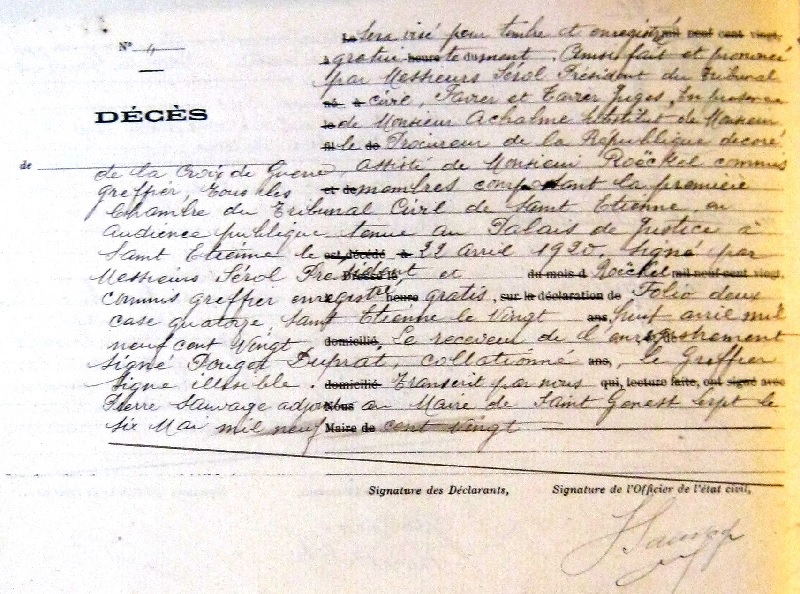 Le Sera visé pour timbre et enregistré mil neuf cent vingt,
N° 4
à gratui heure tement. Ainsi fait et prononcé
par Messieurs Sérol Président du Tribunal
DÉCÈS
né à civil, Favier et Juges, En présence
le de Monsieur Achalme Substitut de Monsieur
fil le de Procureur de la République décoré
de
de la Croix de Guerre, assisté de Monsieur Roëckel commis
greffier, tous les et de membres composant la première
Chambre du Tribunal Civil de Saint Etienne, en
audience publique tenue au Palais de Justice à
Saint Etienne le est décédé à 22 avril 1920. Signé par
Messieurs Sérol Président et du mois d Roëckel mil neuf cent vingt,
commis greffier enregistré heure gratis, sur la déclaration de Folio deux
case quatorze Saint Etienne le vingt ans, neuf avril mil
neuf cent vingt domicilié, Le receveur de l'enregistrement
signé Pouget Duprat, collationné ans, le Greffier
signé illisible. domicilié Transcrit par nous qui, lecture faite, ont signé avec
Pierre Sauvage adjoint Nous au Maire de Saint Genest Lerpt le
six Mai mil neuf Maire de cent vingt
Signature des Déclarants, Signature de l'Officier de l'état civil,